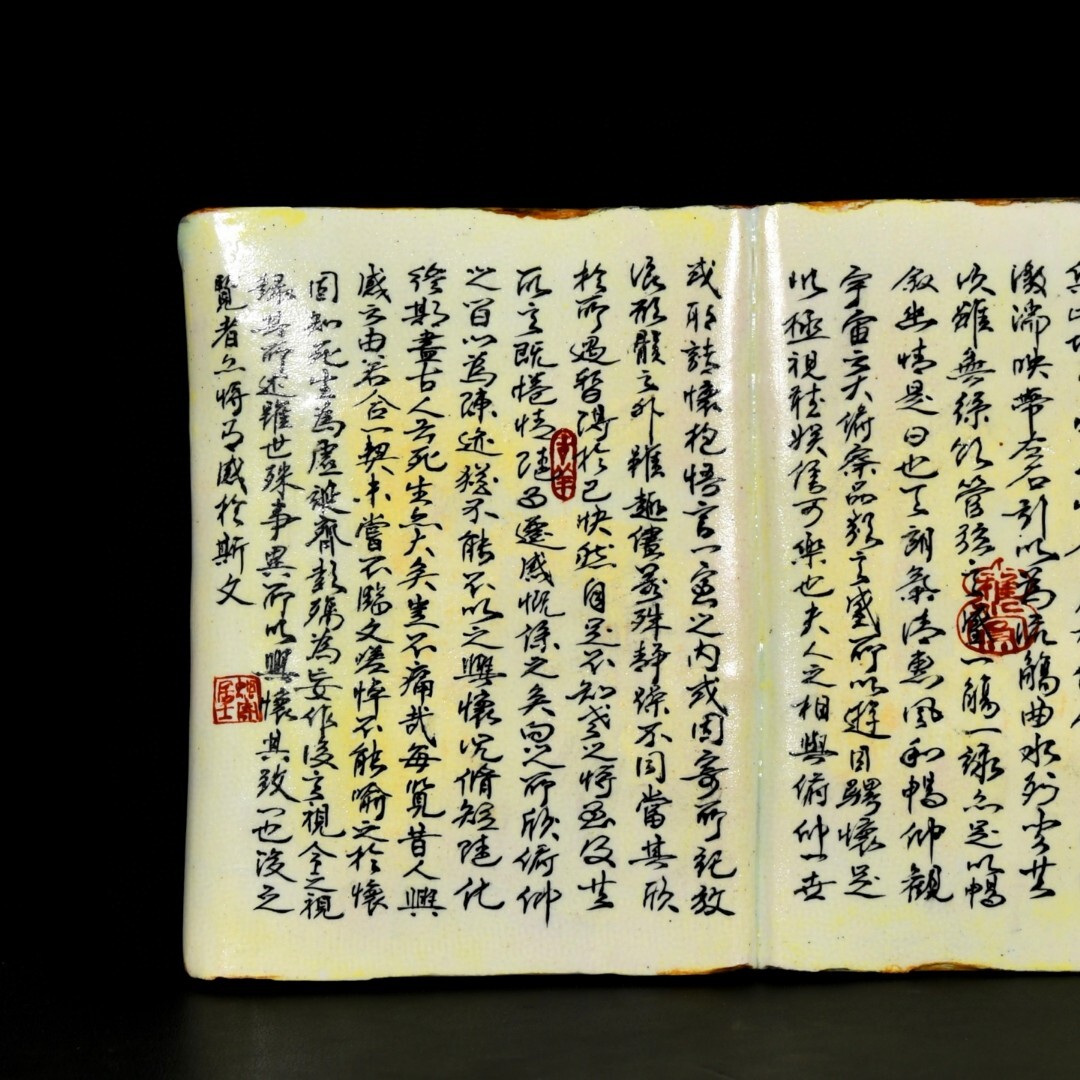 激湍映帶左右引以為流觴曲水列坐其
次雖無絲竹管弦之盛一觴一詠亦足以暢
敘幽情是日也天朗氣清惠風和暢仰觀
宇宙之大俯察品類之盛所以遊目騁懷足
以極視聽娛信可樂也夫人之相與俯仰一世
或取諸懷抱悟言一室之內或因寄所託放
浪形骸之外雖趣舍萬殊靜躁不同當其欣
於所遇暫得於己快然自足不知老之將至及其
所之既惓情隨事遷感慨係之矣向之所欣俯仰
之間以為陳迹猶不能不以之興懷況脩短隨化
終期盡古人云死生亦大矣豈不痛哉每覽昔人興
感之由若合一契未嘗不臨文嗟悼不能喻之於懷
固知死生為虛誕齊彭殤為妄作後之視今之視
錄其所述雖世殊事異所以興懷其致一也後之
覽者亦將有感於斯文
居士